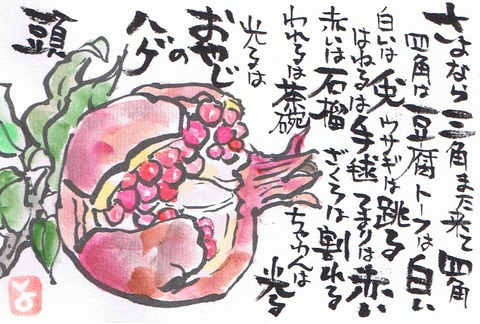 さよなら三角また来て四角
四角は豆腐トーフは白い
白いは兎ウサギは跳る
はねるは手毬てまりは赤い
赤いは石榴ざくろは割れる
われるは茶碗ちゃわんは光る
光るは
おやじ
の
ハゲ
頭